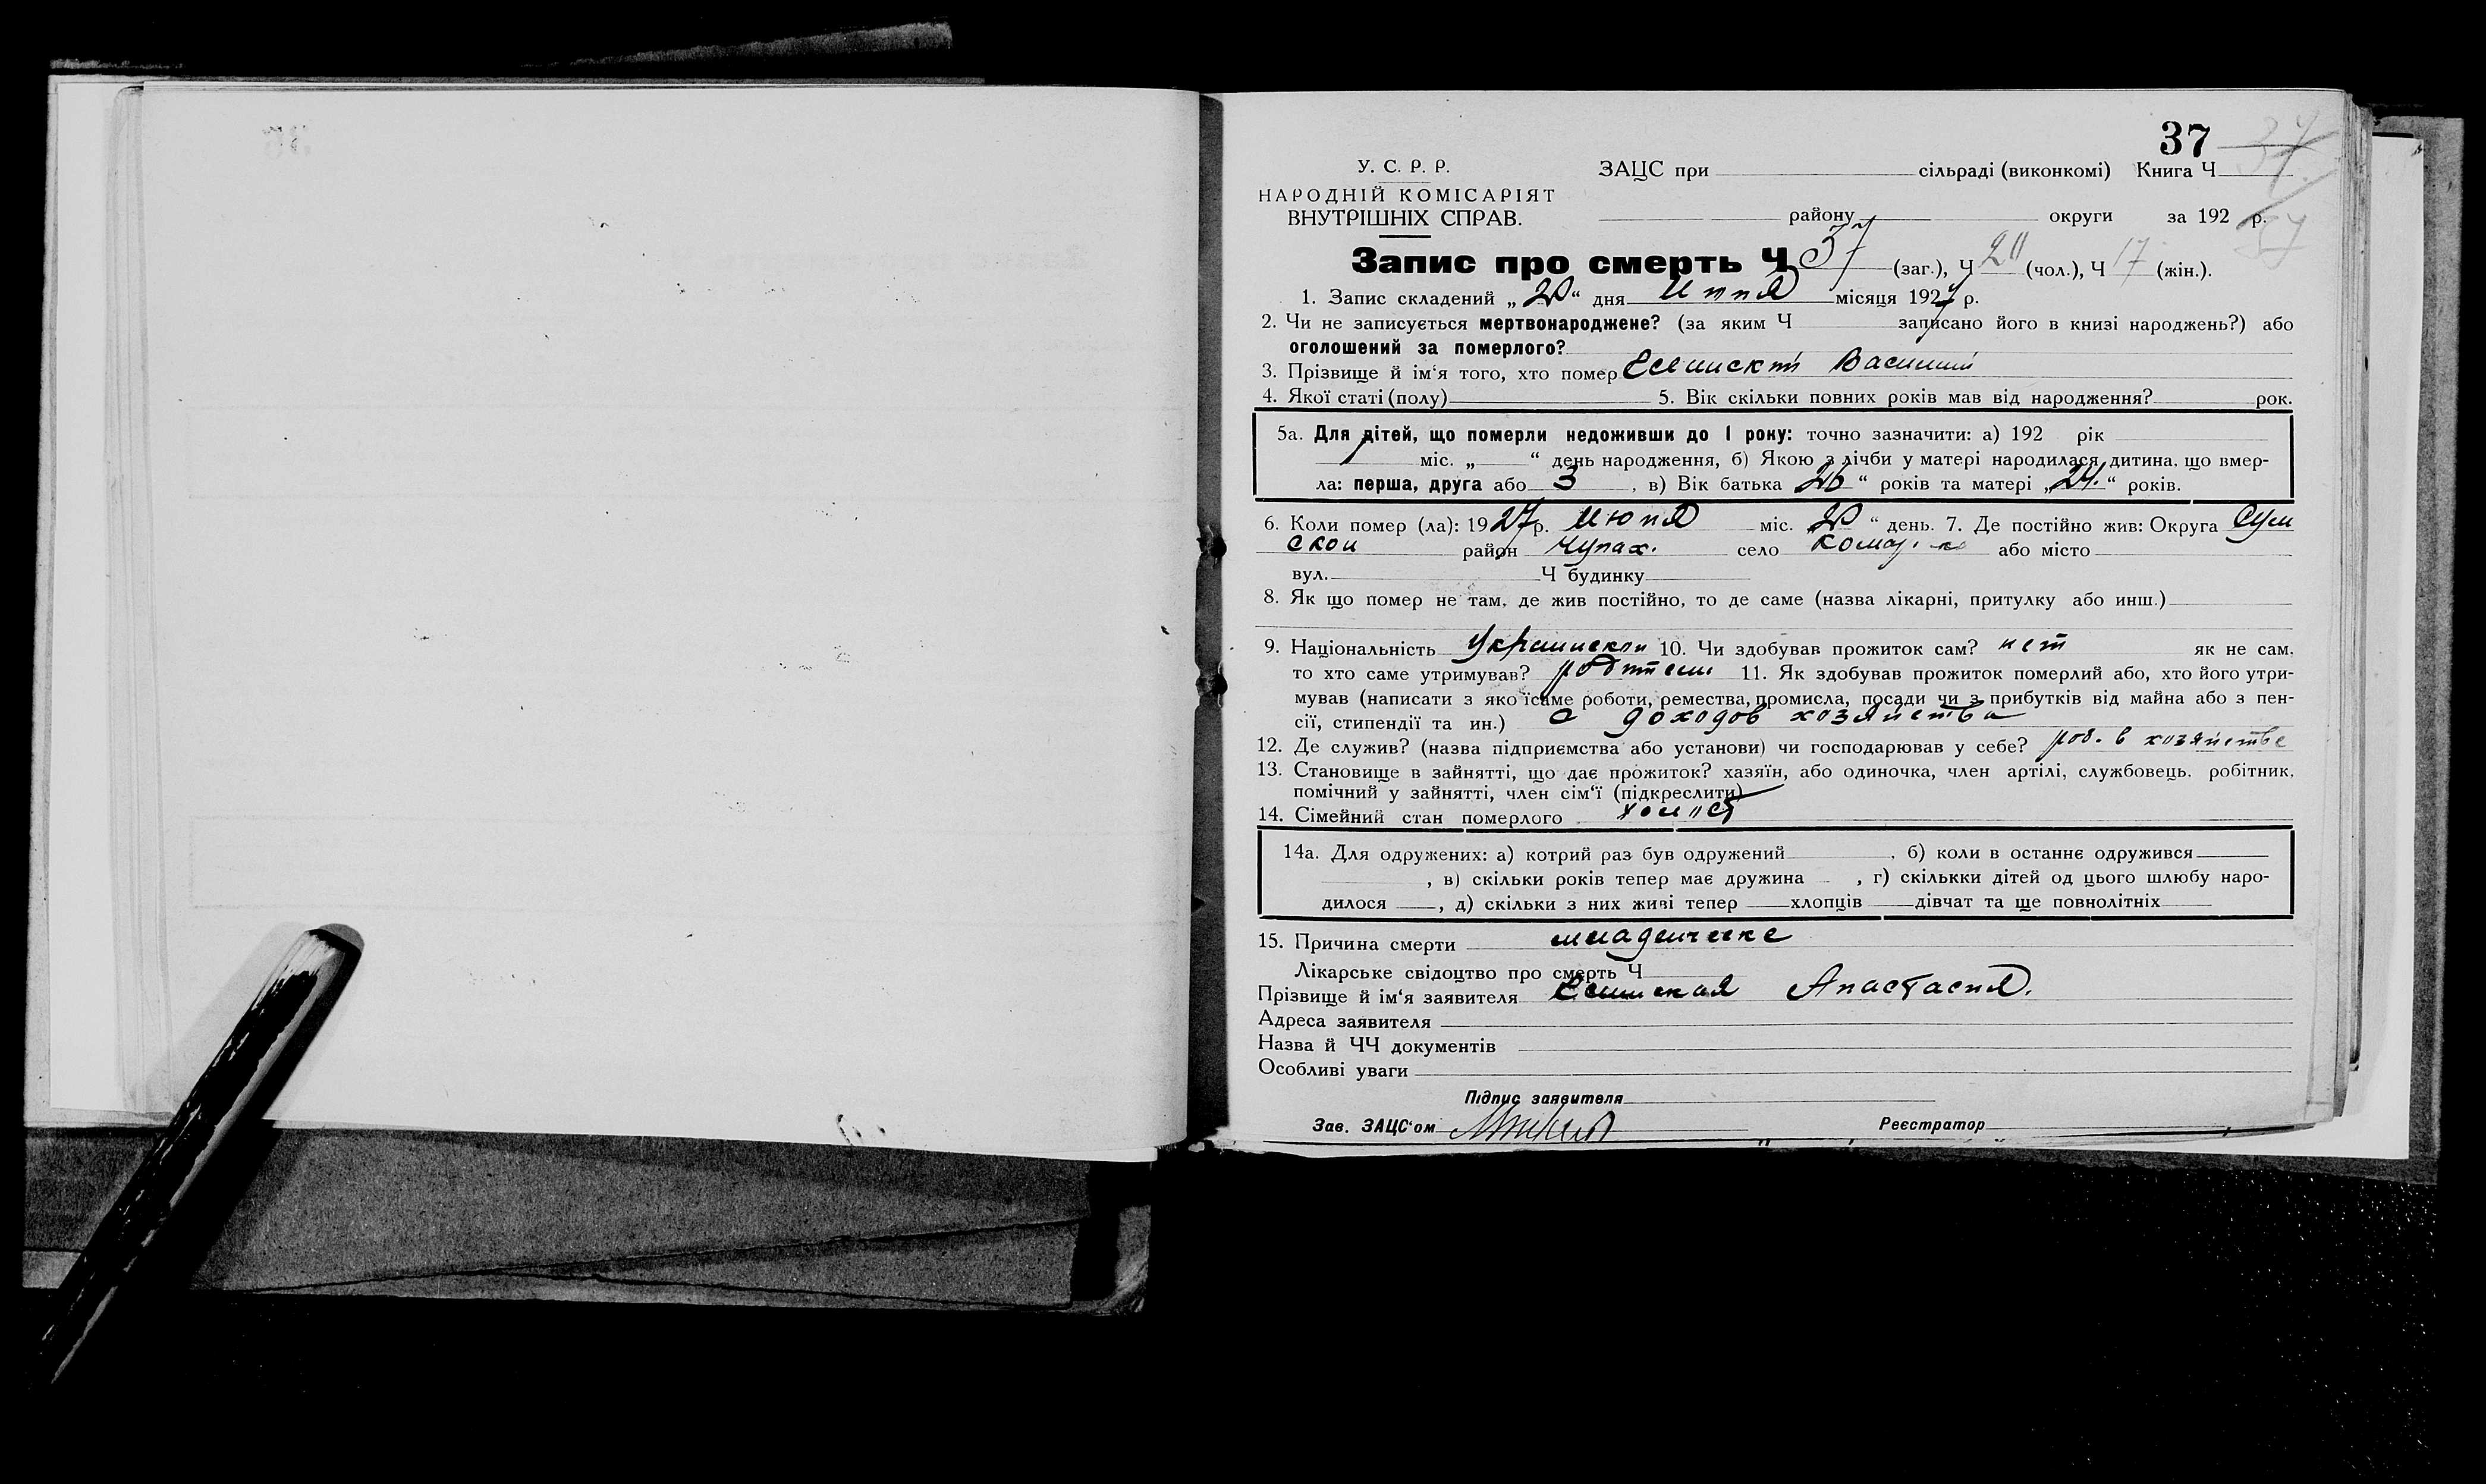 37
У. С. Р. Р. ЗАЦС при сільраді (виконкомі) Книга Ч 37
НАРОДНІЙ КОМІСАРІЯТ
ВНУТРІШНІХ СПРАВ. району округи за 192 р. 37
Запис про смерть Ч 37 (заг.), Ч 20 (чол.), Ч 17 (жін.).
1. Запис складений „ “ дня місяця 1927 р.
2. Чи не записується мертвонароджене? (за яким Ч записано його в книзі народжень?) або
оголошений за померлого?
3. Прізвище й ім‘я того, хто помер Василий
4. Якої статі (полу) 5. Вік скільки повних років мав від народження? рок.
5а. Для дітей, що померли недоживши до 1 року: точно зазначити: а) 192 рік
міс. „ “ день народження, б) Якою з лічби у матері народилася дитина, що вмер-
ла: перша, друга або 3, в) Вік батька 26 “ років та матері „24.“ років.
6. Коли помер (ла): 1927 р. Июня міс. “ день. 7. Де постійно жив: Округа Сум
ской район Чупах. село або місто
вул. Ч будинку
8. Як що помер не там, де жив постійно, то де саме (назва лікарні, притулку або инш.)
9. Національність Украинской 10. Чи здобував прожиток сам? нет як не сам,
то хто саме утримував? родители 11. Як здобував прожиток померлий або, хто його утри-
мував (написати з якої саме роботи, ремества, промисла, посади чи з прибутків від майна або з пен-
сії, стипендії та ин.) с доходов хозяйства
12. Де служив? (назва підприємства або установи) чи господарював у себе? род. в хозяйстве
13. Становище в зайнятті, що дає прожиток? хазяїн, або одиночка, член артілі, службовець, робітник,
помічний у зайнятті, член сім‘ї (підкреслити)
14. Сімейний стан померлого холост
14а. Для одружених: а) котрий раз був одружений, б) коли в останнє одружився
, в) скільки років тепер має дружина , г) скількки дітей од цього шлюбу наро-
дилося , д) скільки з них живі тепер хлопців дівчат та ще повнолітніх
15. Причина смерти младенческе
Лікарське свідоцтво про смерть Ч
Прізвище й ім‘я заявителя Анастасия.
Адреса заявителя
Назва й ЧЧ документів
Особливі уваги
Підпис заявителя
Зав. ЗАЦС‘ом Реєстратор